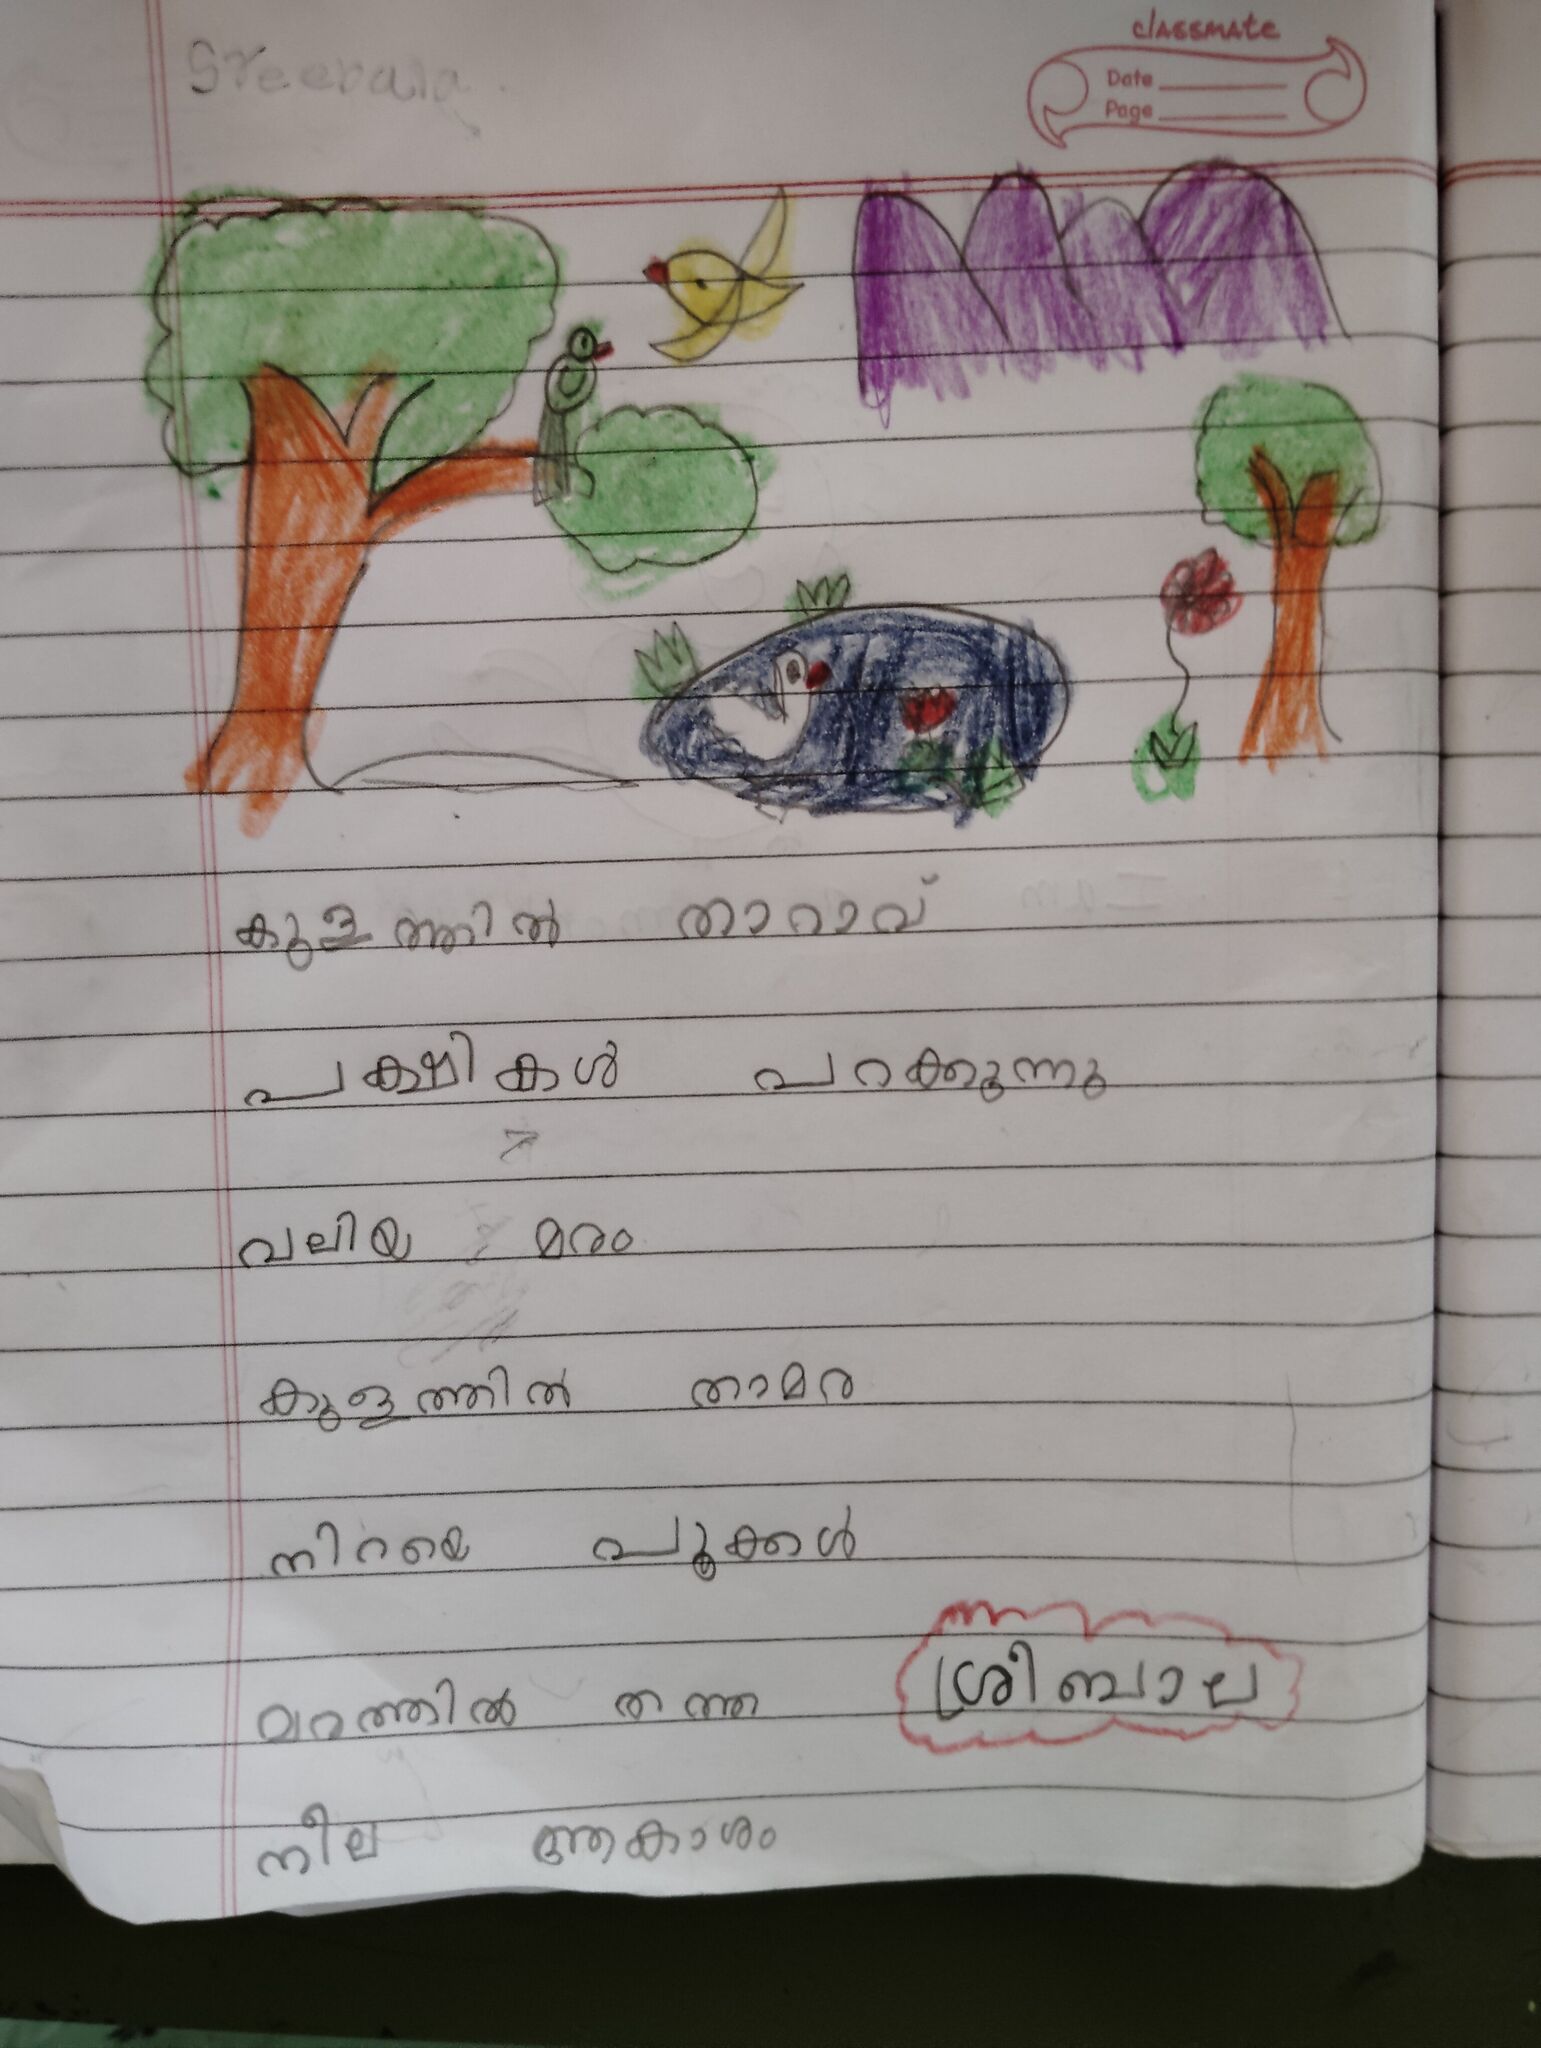 Sreebala
classmate
Date
Page
കുളത്തിൽ താറാവ്
പക്ഷികൾ പറക്കുന്നു
വലിയ മരം
കുളത്തിൽ താമര
നിറയെ പൂക്കൾ
മരത്തിൽ തത്ത
ശ്രീബാല
നീല ആകാശം